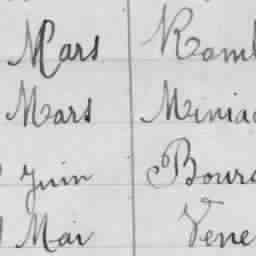 Mars Ramb
Mars Minia
Juin Bour
Mai Vene